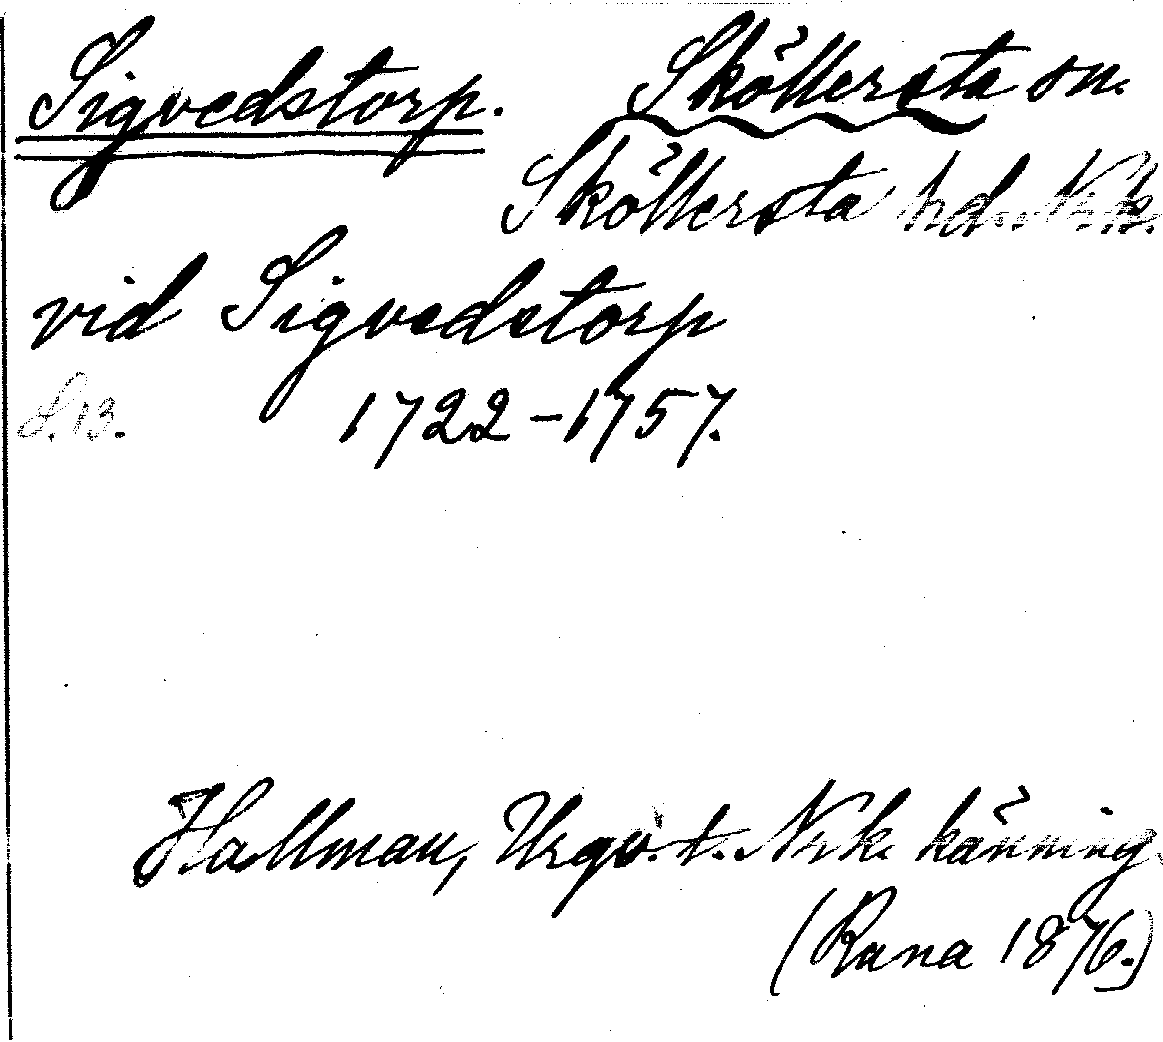 Sigvedstorp. Sköllersta sn.
Sköllersta hd. Nrk.
vid Sigvedstorp
S. 13. 1722-1757.
Hallman, Urgo. t. Nrk. känning
(Runa 1876.)